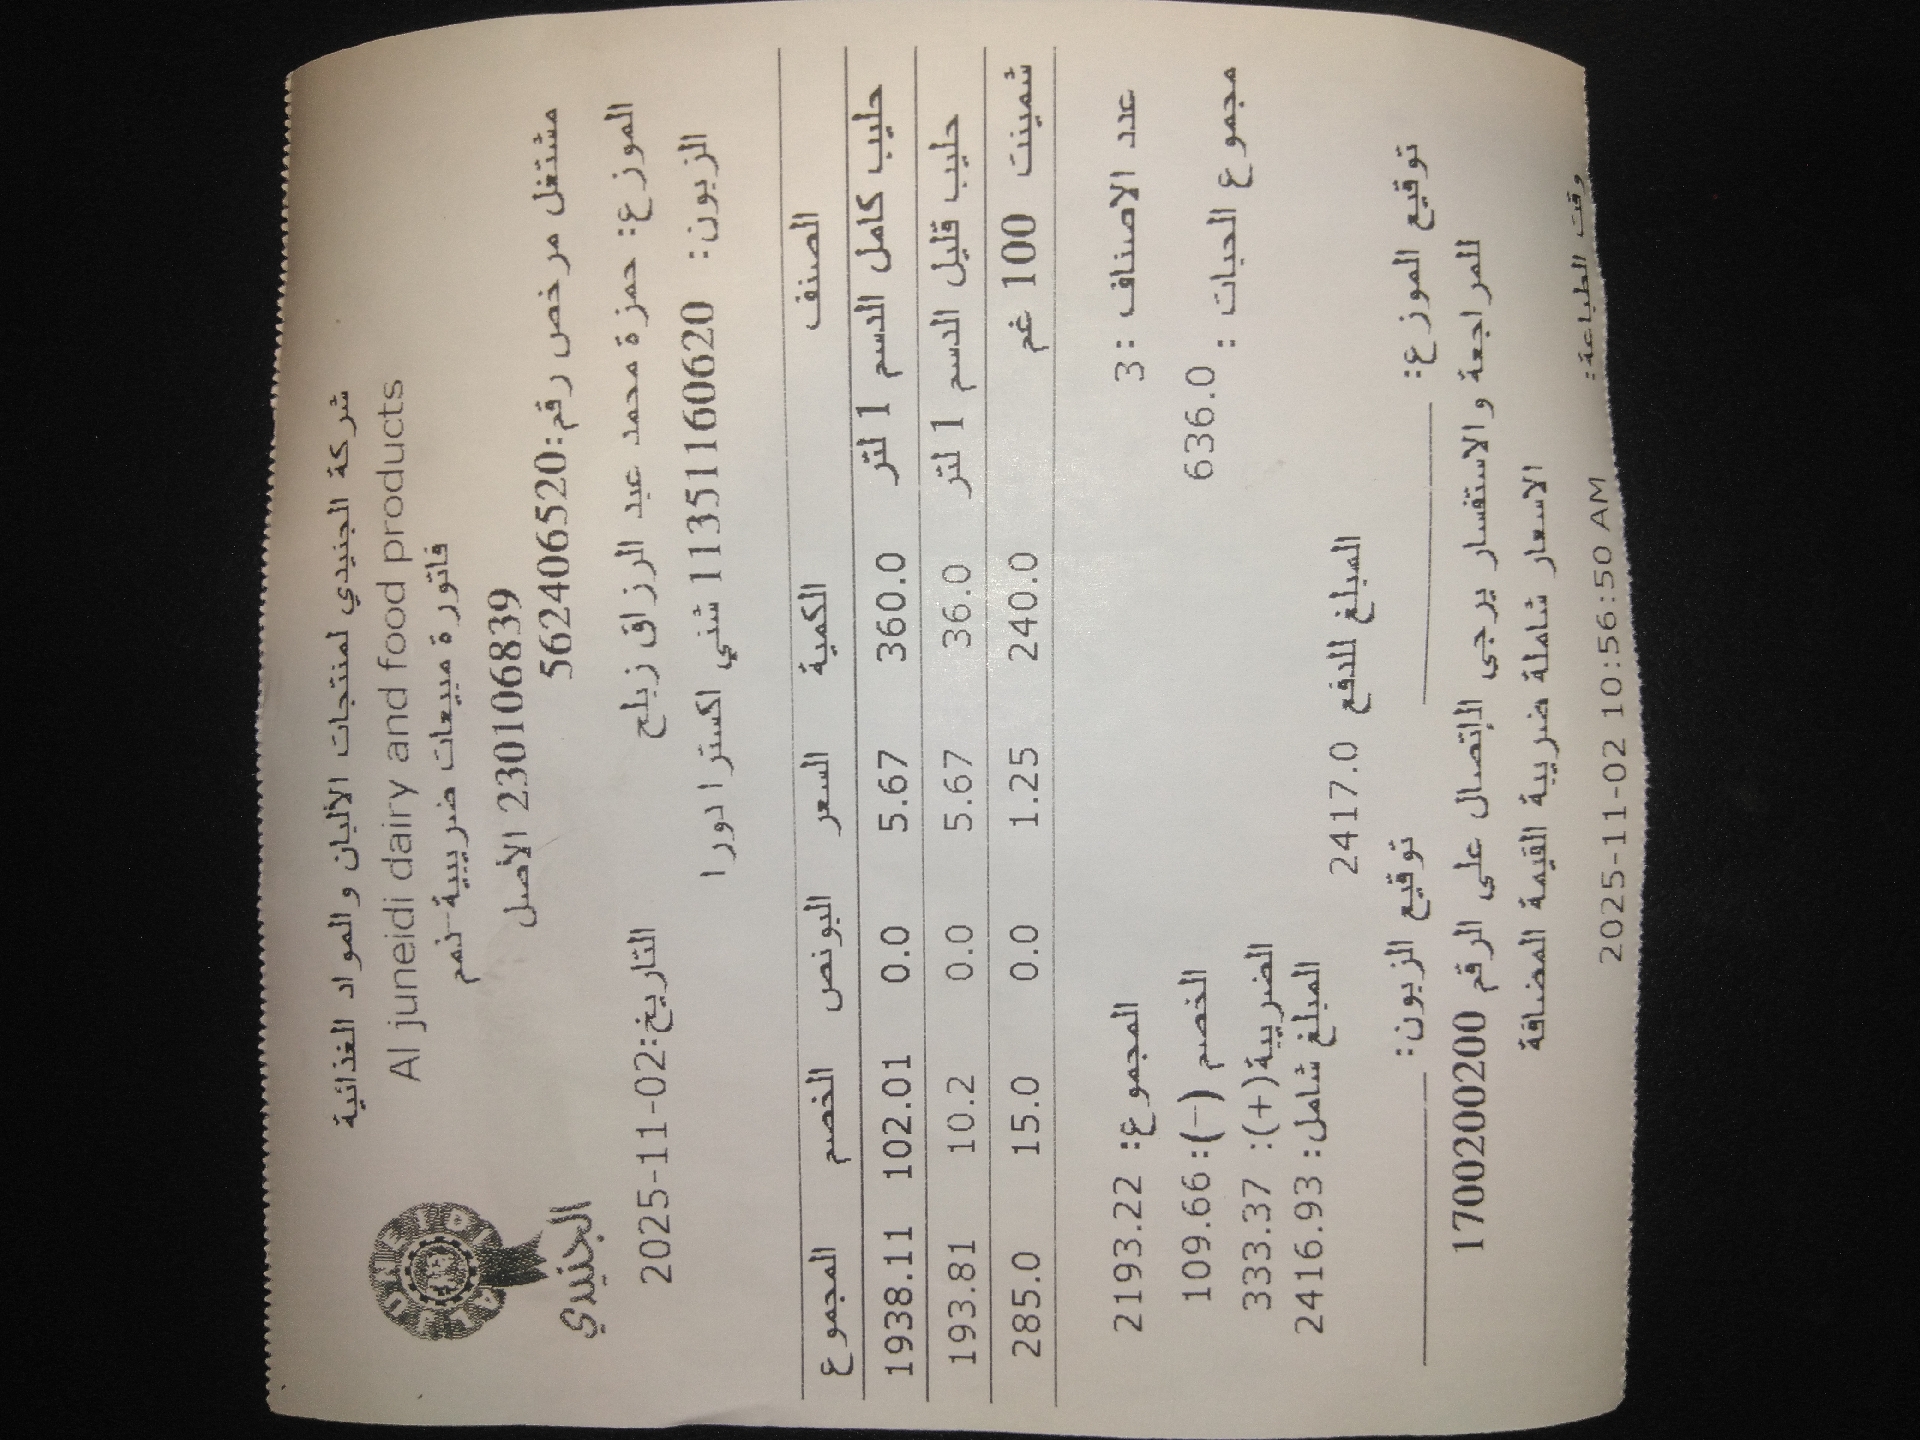 شركة الجنيدي لمنتجات الألبان والمواد الغذائية
Al juneidi dairy and food products
فاتورة مبيعات ضريبية-ذمم
230106839 الأصل
مشتغل مرخص رقم:562406520
JUNEIDI
الجنيدي
الموزع: حمزة محمد عبد الرزاق زبلح
التاريخ:2025-11-02
الزبون: 1135116062O شني اكسترا دورا
الصنف الكمية السعر البونص الخصم المجموع
حليب كامل الدسم 1 لتر 360.0 5.67 0.0 102.01 1938.11
حليب قليل الدسم 1 لتر 36.0 5.67 0.0 10.2 193.81
شمينت 100 غم 240.0 1.25 0.0 15.0 285.0
عدد الاصناف :3 المجموع: 2193.22
مجموع الحبات : 636.0 الخصم (-): 109.66
الضريبة(+): 333.37
المبلغ شامل: 2416.93
المبلغ للدفع 2417.0
توقيع الموزع: ____________ توقيع الزبون: ____________
للمراجعة والاستفسار يرجى الإتصال على الرقم 1700200200
الاسعار شاملة ضريبة القيمة المضافة
وقت الطباعة: 2025-11-02 10:56:50 AM